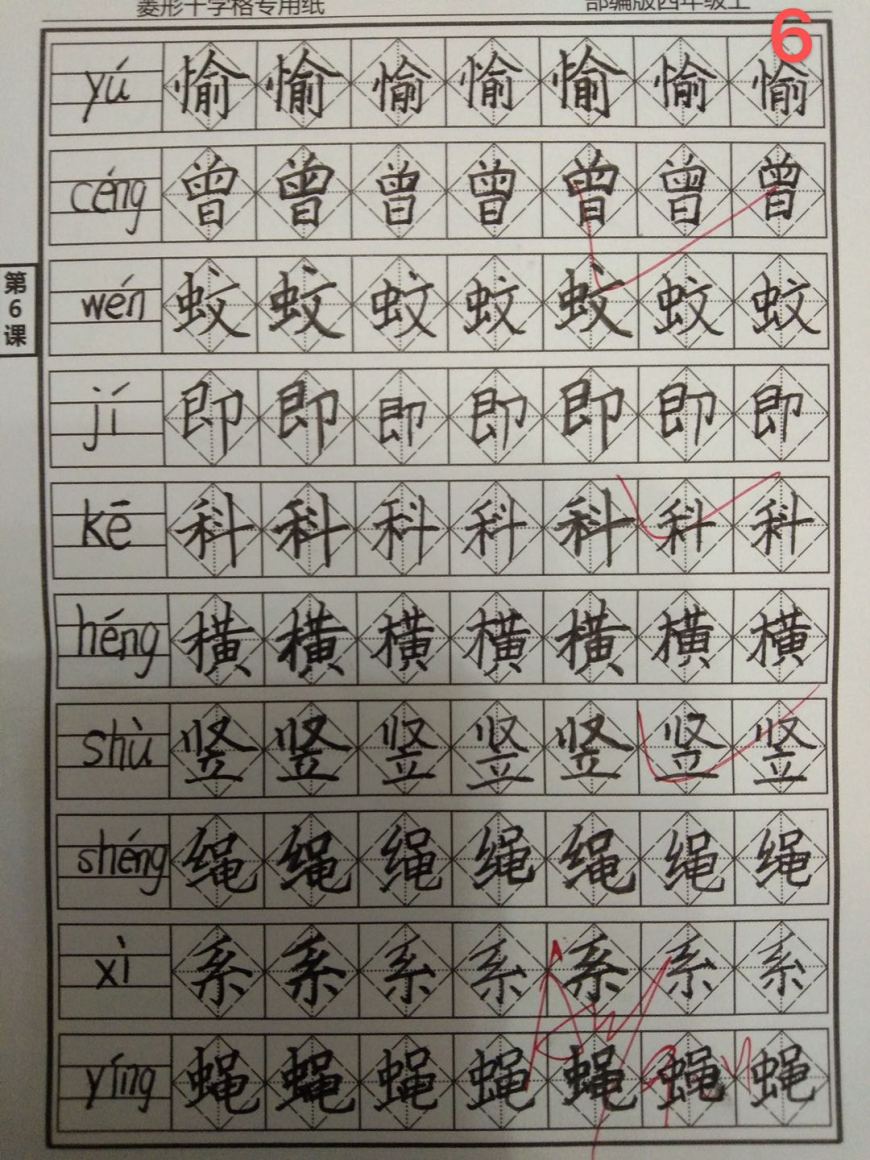 菱形十字格专用纸 部编版四年级上
6
yú 愉 愉 愉 愉 愉 愉 愉
céng 曾 曾 曾 曾 曾 曾 曾
第6课
wén 蚊 蚊 蚊 蚊 蚊 蚊 蚊
jí 即 即 即 即 即 即 即
kē 科 科 科 科 科 科 科
héng 横 横 横 横 横 横 横
shù 竖 竖 竖 竖 竖 竖 竖
shéng 绳 绳 绳 绳 绳 绳 绳
xì 系 系 系 系 系 系 系
yíng 蝇 蝇 蝇 蝇 蝇 蝇 蝇